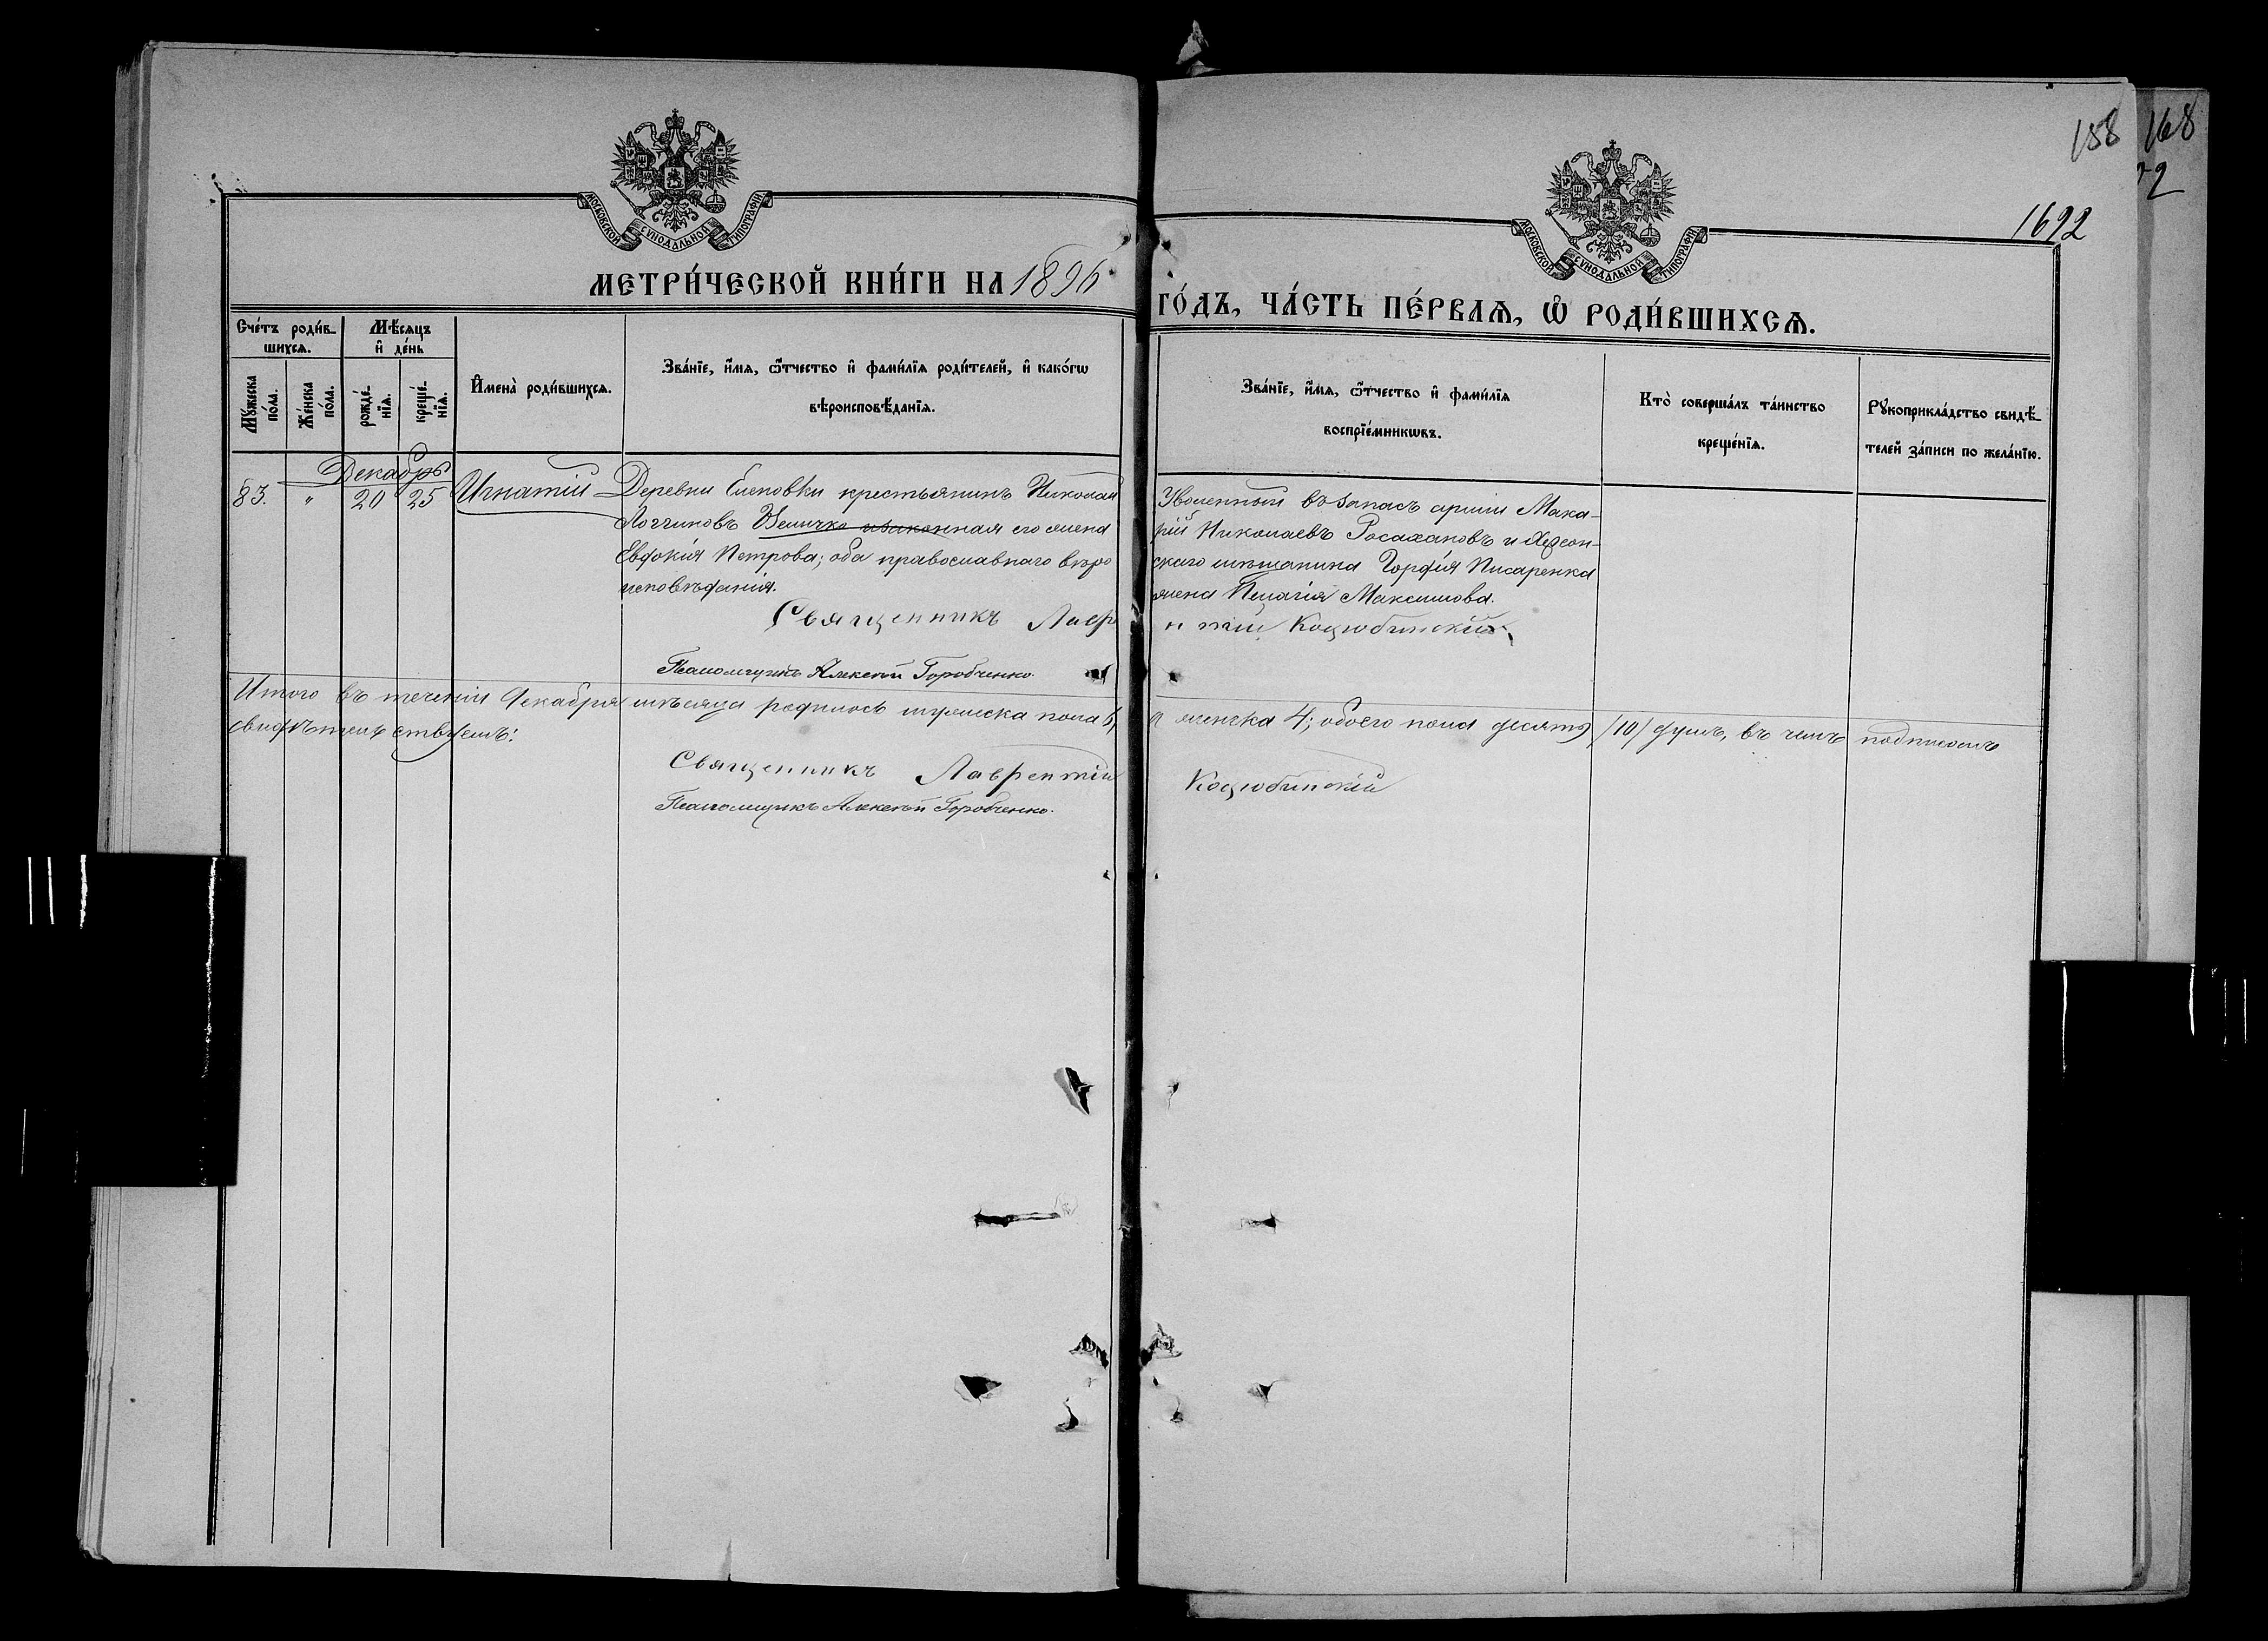 158 168
72
1692
МОСКОВСКОЙ СѴНОДАЛЬНОЙ ТИПОГРАФІИ
МОСКОВСКОЙ СѴНОДАЛЬНОЙ ТИПОГРАФІИ
МЕТРИ́ЧЕСКОЙ КНИ́ГИ НА 1896 ГО́ДЪ, ЧА́СТЬ ПЕ́РВАѦ, Ѡ҆ РОДИ́ВШИХСѦ.
Сче́тъ роди́в-
шихсѧ.
Мꙋ́жеска по́ла.
Же́нска по́ла.
Мѣ́сѧцъ
и҆ де́нь
рожде́-
нїѧ.
креще́-
нїѧ.
И҆мена̀ роди́вшихсѧ.
Зва́нїе, и҆́мѧ, ѻ҆́тчество и҆ фами́лїѧ роди́телей, и҆ како́гѡ
вѣроисповѣ́данїѧ.
Зва́нїе, и҆́мѧ, ѻ҆́тчество и҆ фами́лїѧ
воспрїе́мникѡвъ.
Кто̀ соверша́лъ та́инство
креще́нїѧ.
Рꙋкоприкла́дство свидѣ́-
телей за́писи по жела́нїю.
Декабрь
83. " 20 25 Игнатій
Деревни Еленовки крестьянинъ Николай
Логгиновъ Величко и законная его жена
Евдокія Петрова; оба православнаго вѣро
исповѣданія.
Уволенный въ запасъ арміи Мака-
рій Николаевъ Росахановъ и Херсон-
скаго мѣщанина Гордѣя Писаренка
жена Пелагія Максимова.
Священникъ Лаврентій Коцюбинскій
Псаломщикъ Алексѣй Горобченко.
Итого въ теченіи декабря мѣсяца родилось мужеска пола 6, а женска 4; обоего пола десять /10/ душъ, въ чемъ подписомъ
свидѣтельствуемъ:
Священникъ Лаврентій Коцюбинскій
Псаломщикъ Алексѣй Горобченко.